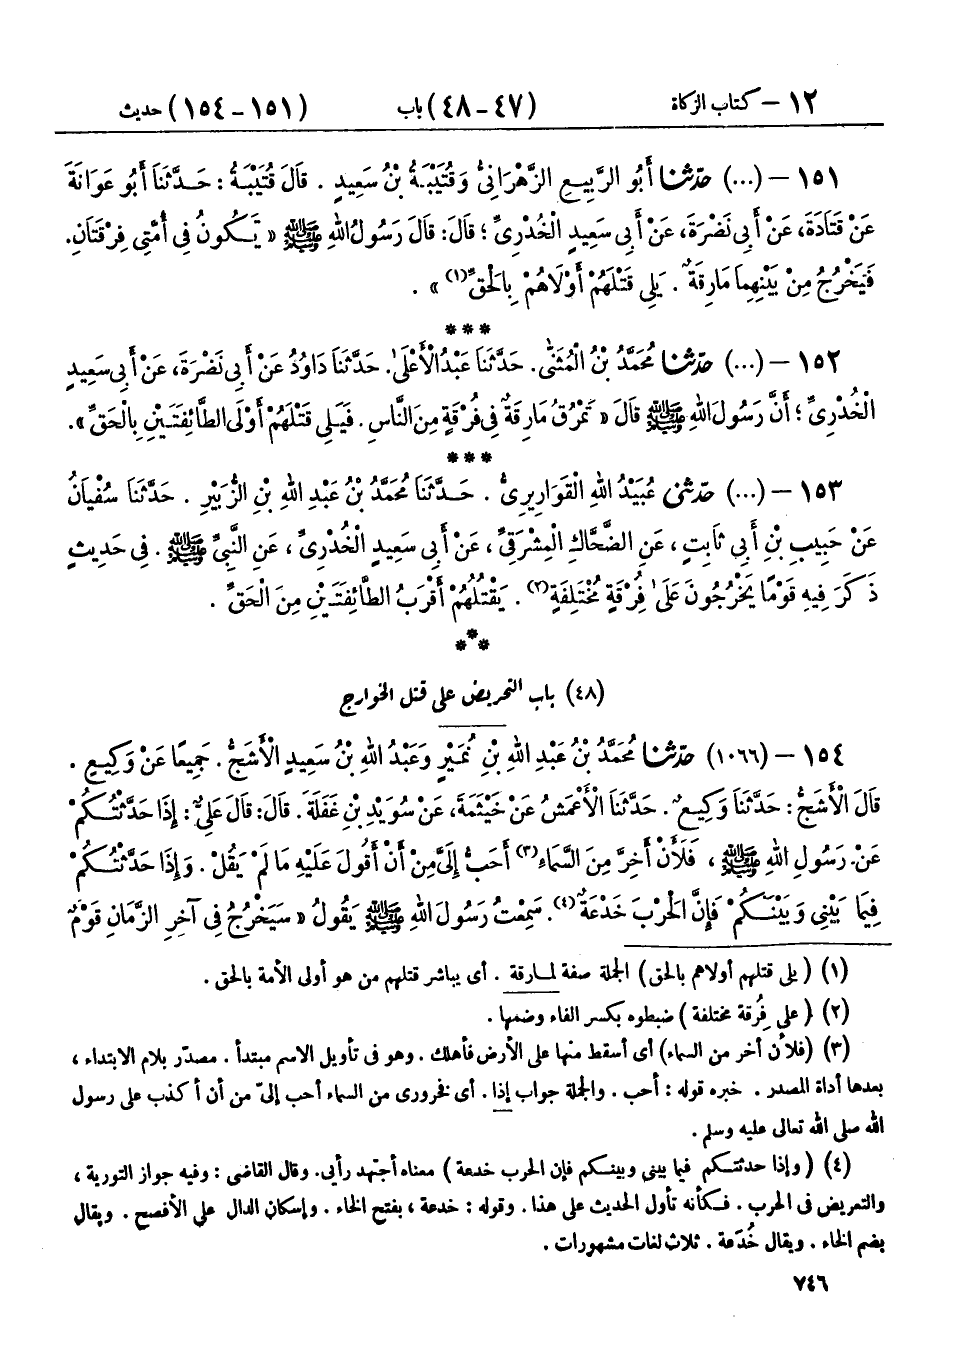 ١٢ – كتاب الزكاة (٤٧ - ٤٨) باب (١٥١ - ١٥٤) حديث
١٥١ – (...) حدّثنا أَبُو الرَّبِيعِ الزَّهْرَانِىُّ وَقُتَيْبَةُ بْنُ سَعِيدٍ . قَالَ قُتَيْبَةُ : حَدَّثَنَا أَبُو عَوَانَةَ
عَنْ قَتَادَةَ، عَنْ أَبِى نَضْرَةَ، عَنْ أَبِى سَعِيدٍ الْخُدْرِىِّ ؛ قَالَ: قَالَ رَسُولُ اللهِ ﷺ « تَكُونُ فِى أُمَّتِى فِرْقَتَانِ.
فَيَخْرُجُ مِنْ بَيْنِهِمَا مَارِقَةٌ . يَلِى قَتْلَهُمْ أَوْلَاهُمْ بِالْحَقِّ(١) » .
***
١٥٢ – (...) حدّثنا مُحَمَّدُ بْنُ الْمُثَنَّى. حَدَّثَنَا عَبْدُ الْأَعْلَى. حَدَّثَنَا دَاوُدُ عَنْ أَبِى نَضْرَةَ، عَنْ أَبِى سَعِيدٍ
الْخُدْرِىِّ ؛ أَنَّ رَسُولَ اللهِ ﷺ قَالَ « تَمْرُقُ مَارِقَةٌ فِى فُرْقَةٍ مِنَ النَّاسِ . فَيَلِى قَتْلَهُمْ أَوْلَى الطَّائِفَتَيْنِ بِالْحَقِّ ».
***
١٥٣ – (...) حدّثنى عُبَيْدُ اللهِ الْقَوَارِيرِىُّ . حَدَّثَنَا مُحَمَّدُ بْنُ عَبْدِ اللهِ بْنِ الزُّبَيْرِ . حَدَّثَنَا سُفْيَانُ
عَنْ حَبِيبِ بْنِ أَبِى ثَابِتٍ ، عَنِ الضَّحَّاكِ الْمِشْرَقِىِّ ، عَنْ أَبِى سَعِيدٍ الْخُدْرِىِّ ، عَنِ النَّبِىِّ ﷺ . فِى حَدِيثٍ
ذَكَرَ فِيهِ قَوْمًا يَخْرُجُونَ عَلَى فُرْقَةٍ مُخْتَلِفَةٍ(٢) . يَقْتُلُهُمْ أَقْرَبُ الطَّائِفَتَيْنِ مِنَ الْحَقِّ .
***
(٤٨) باب التحريض على قتل الخوارج
١٥٤ – (١٠٦٦) حدّثنا مُحَمَّدُ بْنُ عَبْدِ اللهِ بْنِ نُمَيْرٍ وَعَبْدُ اللهِ بْنُ سَعِيدٍ الْأَشَجُّ . جَمِيعًا عَنْ وَكِيعٍ .
قَالَ الْأَشَجُّ : حَدَّثَنَا وَكِيعٌ . حَدَّثَنَا الْأَعْمَشُ عَنْ خَيْثَمَةَ، عَنْ سُوَيْدِ بْنِ غَفَلَةَ. قَالَ: قَالَ عَلِىٌّ : إِذَا حَدَّثْتُكُمْ
عَنْ رَسُولِ اللهِ ﷺ ، فَلَأَنْ أَخِرَّ مِنَ السَّمَاءِ(٣) أَحَبُّ إِلَىَّ مِنْ أَنْ أَقُولَ عَلَيْهِ مَا لَمْ يَقُلْ . وَإِذَا حَدَّثْتُكُمْ
فِيمَا بَيْنِى وَبَيْنَكُمْ فَإِنَّ الْحَرْبَ خَدْعَةٌ(٤). سَمِعْتُ رَسُولَ اللهِ ﷺ يَقُولُ « سَيَخْرُجُ فِى آخِرِ الزَّمَانِ قَوْمٌ
(١) ( يلى قتلهم أولاهم بالحق ) الجملة صفة لمارقة . أى يباشر قتلهم من هو أولى الأمة بالحق .
(٢) ( على فِرُقة مختلفة ) ضبطوه بكسر الفاء وضمها .
(٣) (فلأن أخر من السماء) أى أسقط منها على الأرض فأهلك . وهو فى تأويل الاسم مبتدأ . مصدّر بلام الابتداء ،
بعدها أداة المصدر . خبره قوله : أحب . والجملة جواب إذا . أى فخرورى من السماء أحب إلىّ من أن أكذب على رسول
الله صلى الله تعالى عليه وسلم .
(٤) ( وإذا حدثتكم فيما بينى وبينكم فإن الحرب خدعة ) معناه أجتهد رأيى. وقال القاضى : وفيه جواز التورية ،
والتعريض فى الحرب . فكأنه تأول الحديث على هذا . وقوله : خدعة ، بفتح الخاء . وإسكان الدال على الأفصح . ويقال
بضم الخاء . ويقال خُدَعة . ثلاث لغات مشهورات .
٧٤٦